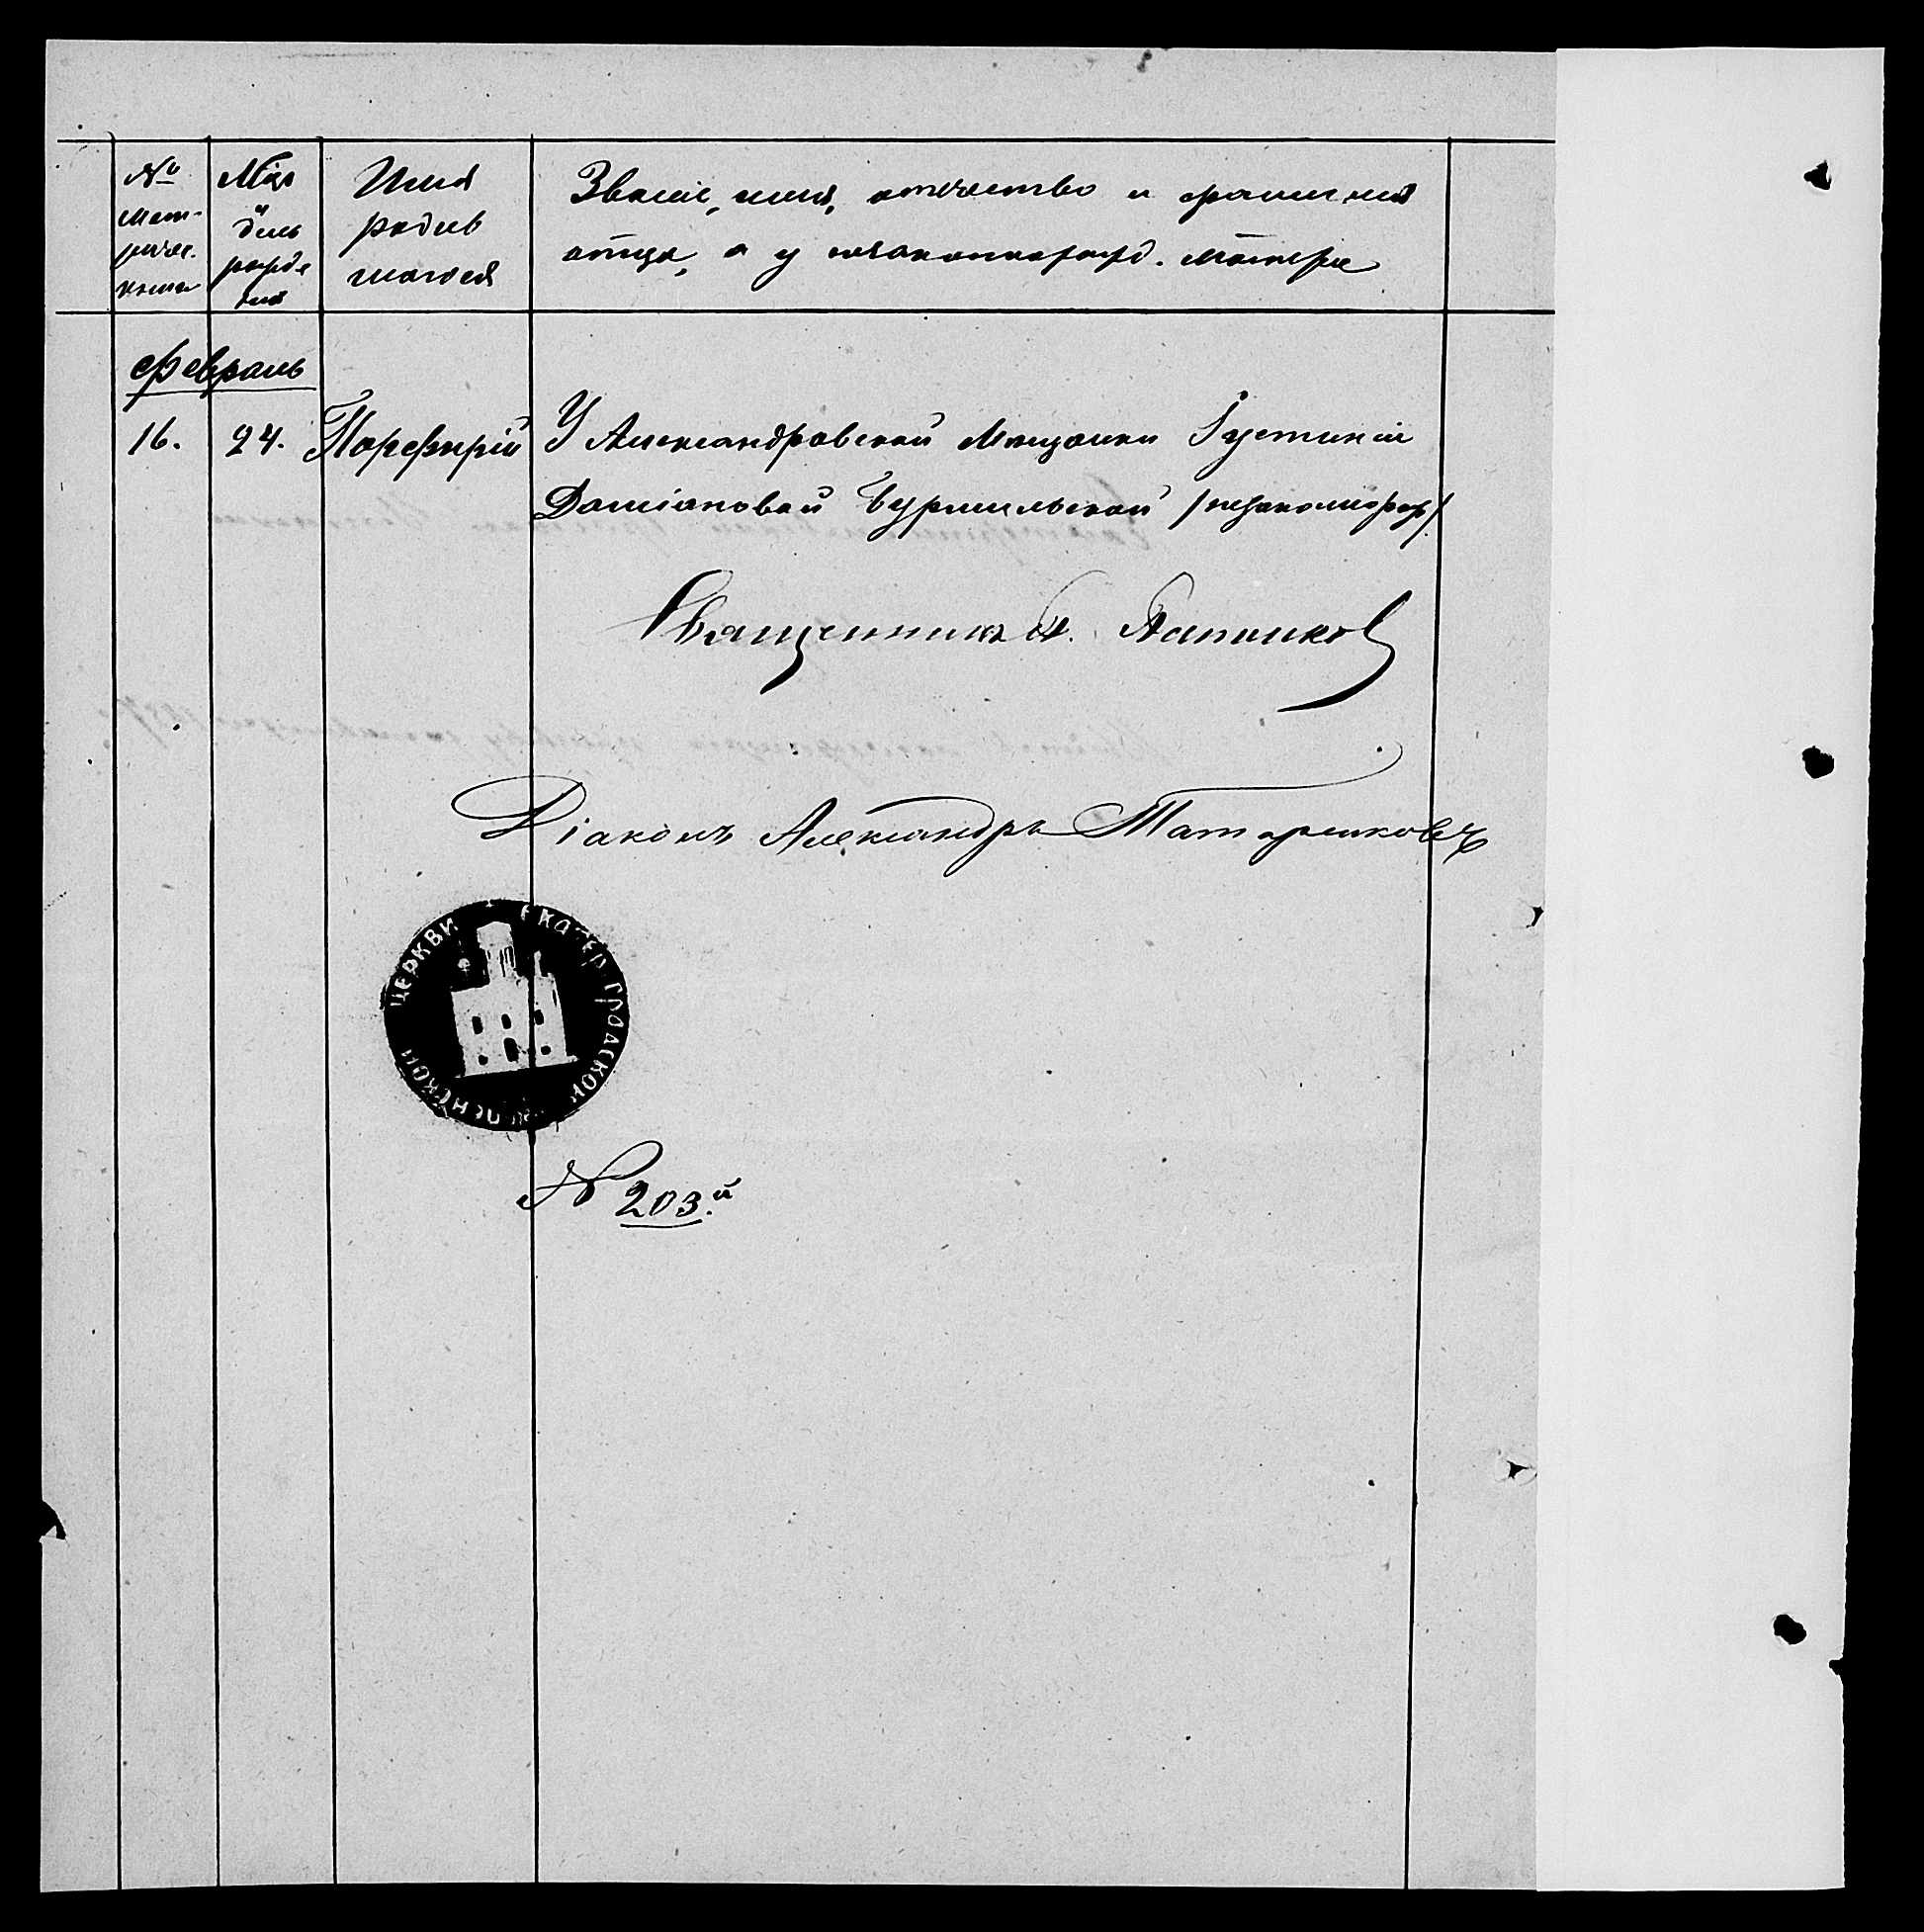 №
Метричес. книги
Мѣс. и день рожденія
Имя родившагося
Званіе, имя, отчество и фамилия
отца, а у незаконнорожд. матери
Февраль
16. 24. Порфирій У Александровской мещанки Іустиніи
Даміановой /незаконнорож/
Священник
Діаконъ Александръ Татариковъ
ЦЕРКВИ ЕКАТЕР. ГРАДСКОЙ УСПЕНСКОЙ
№ 203.й